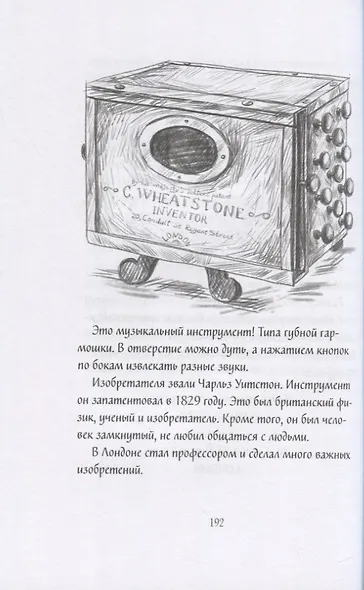 C. WHEATSTONE
INVENTOR
20, Conduit St Regent Street
LONDON
Это музыкальный инструмент! Типа губной гар-
мошки. В отверстие можно дуть, а нажатием кнопок
по бокам извлекать разные звуки.
Изобретателя звали Чарльз Уитстон. Инструмент
он запатентовал в 1829 году. Это был британский фи-
зик, ученый и изобретатель. Кроме того, он был чело-
век замкнутый, не любил общаться с людьми.
В Лондоне стал профессором и сделал много важных
изобретений.
192